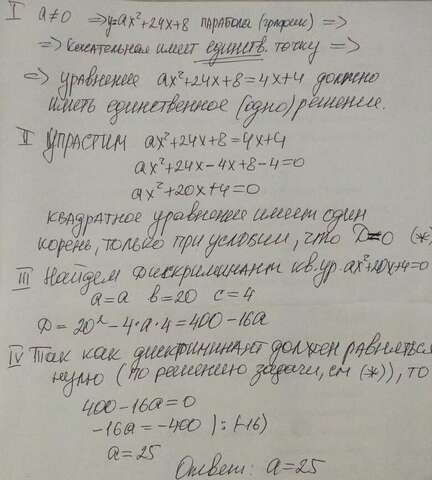 I a≠0 ⇒ y=ax²+24x+8 парабола (график) ⇒
⇒ касательная имеет единств. точку ⇒
⇒ уравнение ax²+24x+8=4x+4 должно
иметь единственное (одно) решение.
II Упрастим ax²+24x+8=4x+4
ax²+24x-4x+8-4=0
ax²+20x+4=0
квадратное уравнение имеет один
корень, только при условии, что D=0 (*)
III Найдем дискриминант кв.ур. ax²+20x+4=0
a=a b=20 c=4
D=20²-4·a·4=400-16a
IV Так как дискриминант должен равняться
нулю (по решению задачи, см (*)), то
400-16a=0
-16a=-400 ):(-16)
a=25
Ответ: a=25